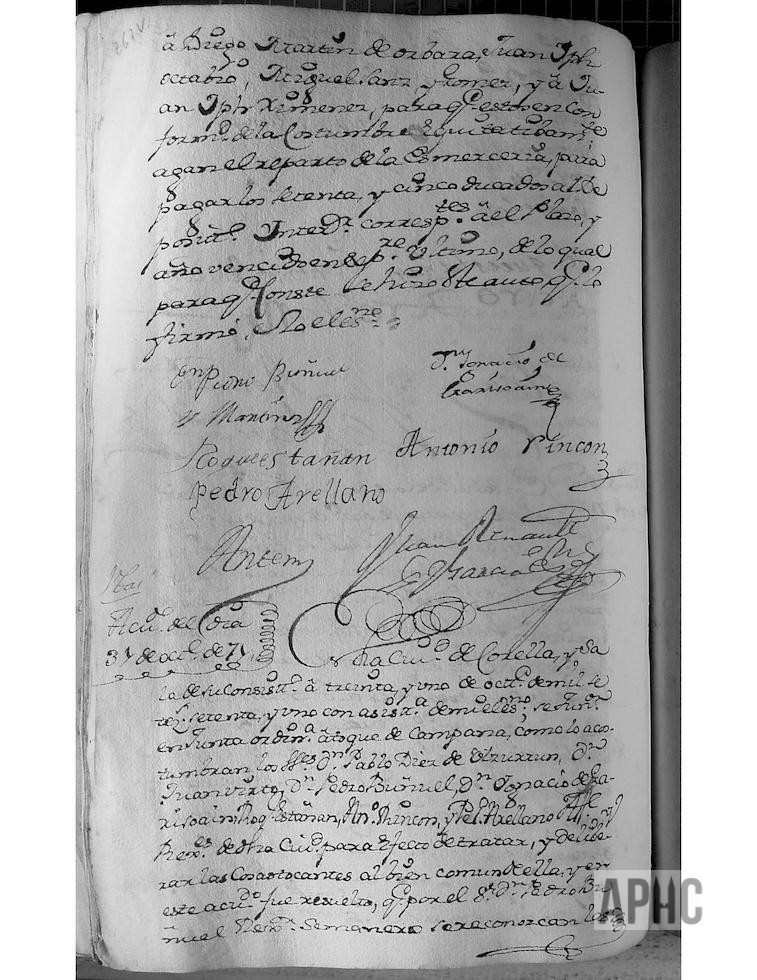 262v
á Diego Martin de orbara, Juan Jph
octabio, Miguel Sanz, y Gomez, y á Ju-
an Jph Ximenez, para q.e estos en con
form.d de la Costumbre equitatibam.te
agan el reparto de la Comerceria, para
pagar los setenta, y cinco ducados al De
posit.o correspo.tes á el Plazo, y
año vencido en ultimo, de lo qual
para q.e Conste se hizo este auto q.e lo
firmó, é Yo el es.no
Dn Pedro Buñuel
y Martinez
Dn Ygnacio de
Garisoain
Roque estañan Antonio Rincon
Pedro Arellano
Antemi Juan Renault
y Garcia
Acu.do del dia
31 de oct.e de 71
En la Ciu.d de Corella, y Sa
la de su Consist.o á treinta, y uno de oct.e de mil se
te.s setenta, y uno con asist.a de mi el es.no se Junt.n
en Junta ordin.a á toque de Campana, como lo acos-
tumbran, los SS.es D.n Pablo Diez de Ulzurrun, D.n
Juan Virto, D.n Pedro Buñuel, D.n Ygnacio de Ga-
risoain, Roq.e Estañan, An.o Rincon, y P.o Arellano y
Rex.es de dha Ciu.d para efecto de tratar, y delibe-
rar las Cosas tocantes al bien comun de ella, y en
este acu.do fue resuelto, q.e por el S.r D.n Pedro Bu
ñuel Rex.r Semanero se reconozcan las
APHC